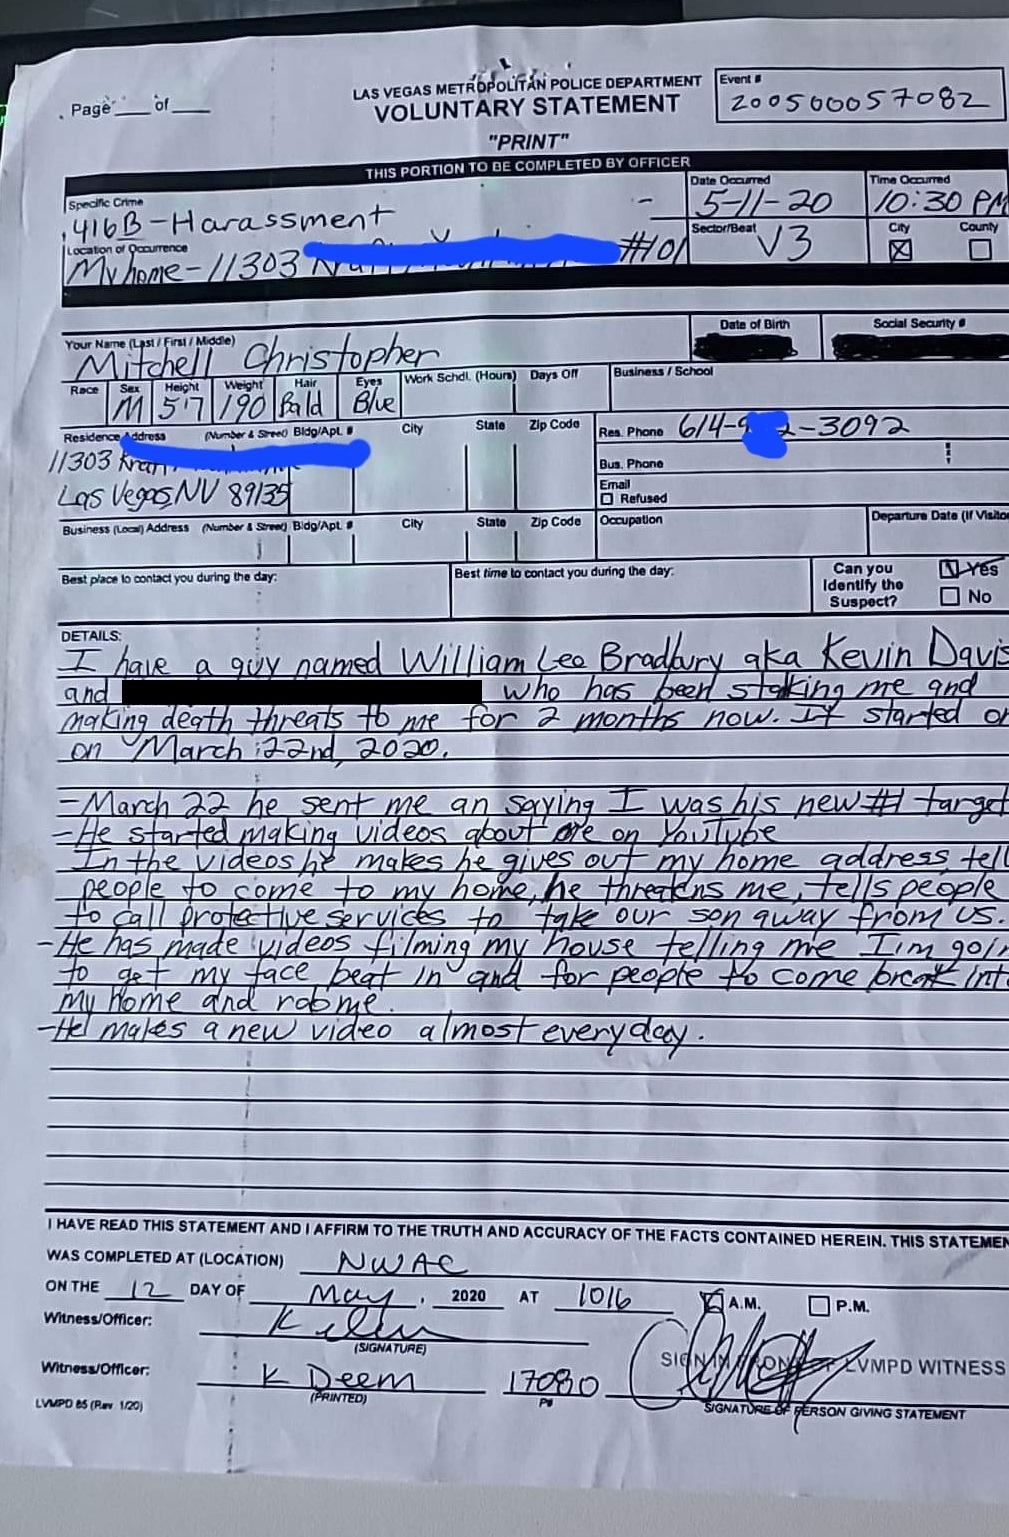 Page ___ of ___
LAS VEGAS METROPOLITAN POLICE DEPARTMENT
VOLUNTARY STATEMENT
"PRINT"
Event #
200500057082
THIS PORTION TO BE COMPLETED BY OFFICER
Specific Crime
416B-Harassment
Date Occurred
5-11-20
Time Occurred
10:30 PM
Location of Occurrence
My home-11303 #101
Sector/Beat
V3
City County
Your Name (Last / First / Middle)
Mitchell Christopher
Date of Birth
Social Security #
Race Sex Height Weight Hair Eyes Work Schdl. (Hours) Days Off Business / School
M 5'7 190 Bald Blue
Residence Address (Number & Street) Bldg/Apt. # City State Zip Code
11303
Las Vegas NV 89135
Res. Phone 614-9 2-3092
Bus. Phone
Email
Refused
Business (Local) Address (Number & Street) Bldg/Apt. # City State Zip Code Occupation Departure Date (If Visitor
Best place to contact you during the day:
Best time to contact you during the day:
Can you Identify the Suspect?
Yes
No
DETAILS:
I have a guy named William Leo Bradbury aka Kevin Davis
and who has been stalking me and
making death threats to me for 2 months now. It started on
on March 22nd, 2020.
-March 22 he sent me an saying I was his new #1 target
-He started making videos about me on YouTube
In the videos he makes he gives out my home address, tell
people to come to my home, he threatens me, tells people
to call protective services to take our son away from us.
-He has made videos filming my house telling me I'm goin
to get my face beat in and for people to come break int
my home and rob me.
-He makes a new video almost everyday.
I HAVE READ THIS STATEMENT AND I AFFIRM TO THE TRUTH AND ACCURACY OF THE FACTS CONTAINED HEREIN. THIS STATEMEN
WAS COMPLETED AT (LOCATION) NWAC
ON THE 12 DAY OF May, 2020 AT 1016 A.M. P.M.
Witness/Officer:
(SIGNATURE)
Witness/Officer: K Deem 17080
(PRINTED) P#
LVMPD WITNESS
SIGNATURE OF PERSON GIVING STATEMENT
LVMPD 85 (Rev. 1/20)